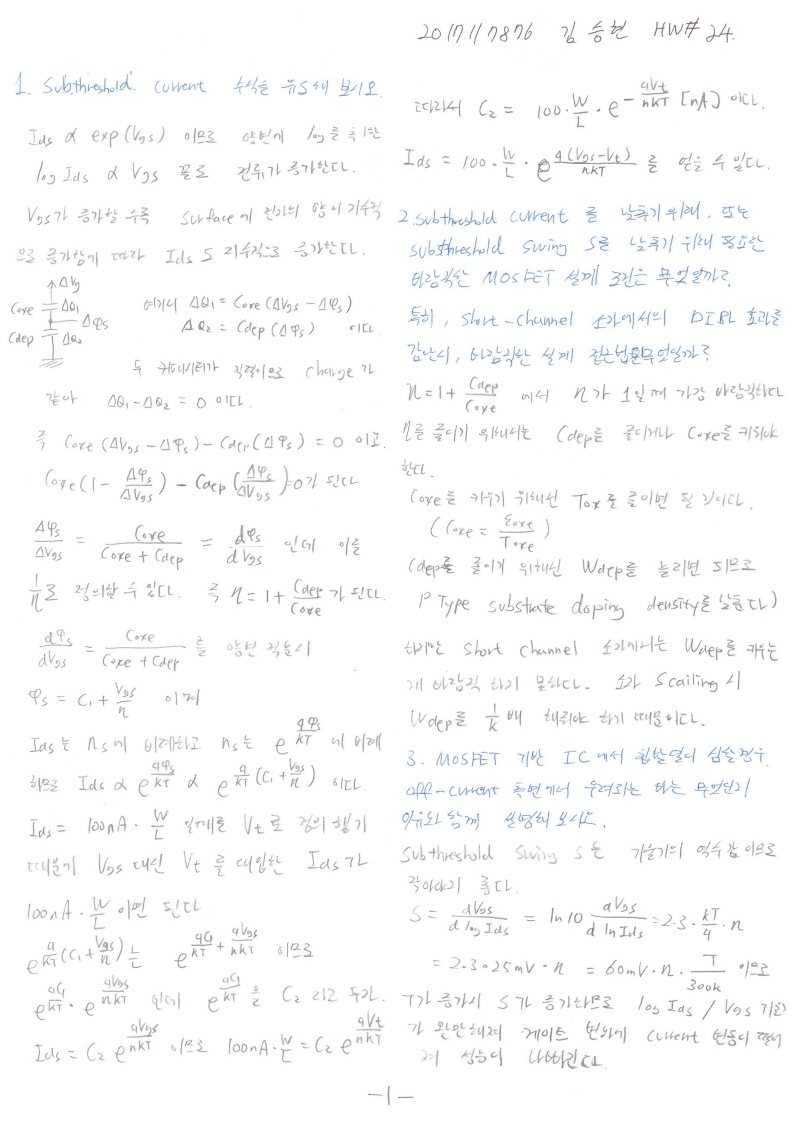 2017117876 김승현 HW# 24.
1. Subthreshold current 수식을 유도해 보시오.
Ids ∝ exp(Vgs) 이므로 양변에 log를 취한
log Ids ∝ Vgs 꼴로 전류가 증가한다.
Vgs가 증가할수록 surface에 전자의 양이 지수적
으로 증가함에 따라 Ids도 지수적으로 증가한다.
ΔVg
Coxe ΔQ1
Δφs
Cdep ΔQ2
여기서 ΔQ1 = Coxe(ΔVgs - Δφs)
ΔQ2 = Cdep(Δφs) 이다.
두 커패시터가 직렬이므로 Charge가
같아 ΔQ1 - ΔQ2 = 0 이다.
즉 Coxe(ΔVgs - Δφs) - Cdep(Δφs) = 0 이고.
Coxe(1 - Δφs/ΔVgs) - Cdep(Δφs/ΔVgs) = 0가 된다
Δφs/ΔVgs = Coxe/(Coxe + Cdep) = dφs/dVgs 인데 이를
1/η로 정의할 수 있다. 즉 η = 1 + Cdep/Coxe 가 된다.
dφs/dVgs = Coxe/(Coxe + Cdep) 를 양변 적분시
φs = C1 + Vgs/η 이며
Ids는 ns에 비례하고 ns는 e^(qφs/kT) 에 비례
하므로 Ids ∝ e^(qφs/kT) ∝ e^(q/kT (C1 + Vgs/η)) 이다.
Ids = 100nA · W/L 일때를 Vt로 정의했기
때문에 Vgs 대신 Vt를 대입한 Ids가
100nA · W/L 이면 된다
e^(q/kT (C1 + Vgs/η))는 e^(qC1/kT + qVgs/ηkT) 이므로
e^(qC1/kT) · e^(qVgs/ηkT) 인데 e^(qC1/kT) 을 C2 라고 두자.
Ids = C2 e^(qVgs/ηkT) 이므로 100nA · W/L = C2 e^(qVt/ηkT)
따라서 C2 = 100 · W/L · e^(-qVt/ηkT) [nA] 이다.
Ids = 100 · W/L · e^(q(Vgs-Vt)/ηkT) 를 얻을 수 있다.
2. Subthreshold current 를 낮추기 위해, 또는
subthreshold swing S를 낮추기 위해 필요한
바람직한 MOSFET 설계 조건은 무엇일까?
특히, short-channel 소자에서의 DIBL 효과를
감안시, 바람직한 설계 접근법은 무엇일까?
η = 1 + Cdep/Coxe 에서 η가 1일때 가장 바람직하다
η를 줄이기 위해서는 Cdep를 줄이거나 Coxe를 키워야
한다.
Coxe를 키우기 위해선 Tox를 줄이면 될 것이다.
(Coxe = εoxe/Toxe)
Cdep를 줄이기 위해선 Wdep를 늘리면 되므로
P Type substrate doping density를 낮춘다)
하지만 short channel 소자에서는 Wdep를 키우는
게 바람직 하지 못하다. 소자 Scailing 시
Wdep를 1/k 배 해줘야 하기 때문이다.
3. MOSFET 기반 IC에서 칩발열이 심할경우,
off-current 측면에서 우려되는 바는 무엇인지
이유와 함께 설명해 보시오.
Subthreshold Swing S는 기울기의 역수 값이므로
작아야기 좋다.
S = dVgs/d log Ids = ln10 dVgs/d ln Ids = 2.3 · kT/q · η
= 2.3 · 25mV · η = 60mV · η · T/300k 이므로
T가 증가시 S가 증가하므로 log Ids / Vgs 기울기
가 완만해져 게이트 변화에 current 변동이 떨어
져 성능이 나빠진다.
-1-